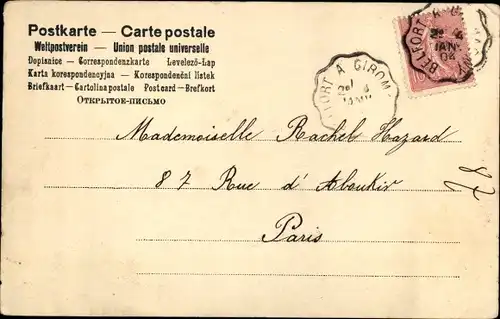 Postkarte — Carte postale
Weltpostverein — Union postale universelle
Dopisnice — Correspondenzkarte Levelező-Lap
Karta korespondencyjna — Korespondenční listek
Briefkaart — Cartolina postale Postcard — Brefkort
ОТКРЫТОЕ-ПИСЬМО
BELFORT A
2E 4
JANV
04
FORT A GIROM
2E 4
JANV
Mademoiselle Rachel Hazard
87 Rue d'Aboukir
Paris